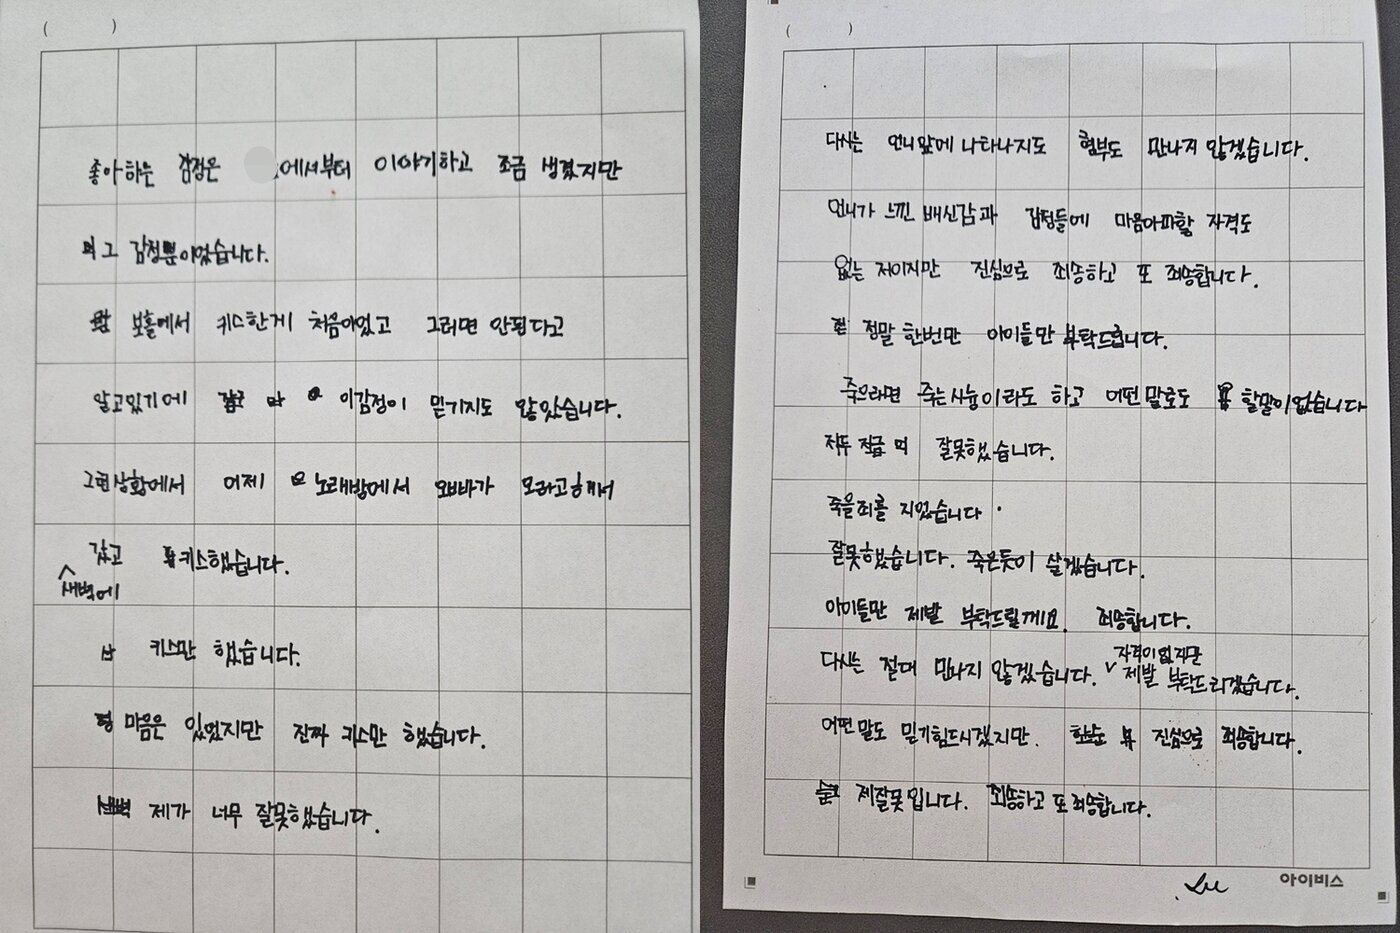 ( )
좋아하는 감정은 에서부터 이야기하고 조금 생겼지만
그 감정뿐이었습니다.
보홀에서 키스한게 처음이었고 그러면 안된다고
알고있기에 이감정이 믿기지도 않았습니다.
그런상황에서 어제 노래방에서 오빠가 오라고해서
갔고 키스했습니다.
새벽에
키스만 했습니다.
마음은 있었지만 진짜 키스만 했습니다.
제가 너무 잘못했습니다.
( )
다시는 언니앞에 나타나지도 형부도 만나지 않겠습니다.
언니가 느낀 배신감과 감정들에 마음아파할 자격도
없는 저이지만 진심으로 죄송하고 또 죄송합니다.
정말 한번만 아이들만 부탁드립니다.
죽으라면 죽는시늉이라도 하고 어떤말로도 할말이없습니다
잘못했습니다.
죽을죄를 지었습니다.
잘못했습니다. 죽은듯이 살겠습니다.
아이들만 제발 부탁드릴게요. 죄송합니다.
자격이없지만
다시는 절대 만나지 않겠습니다. 제발 부탁드리겠습니다.
어떤말도 믿기힘드시겠지만. 진심으로 죄송합니다.
제잘못입니다. 죄송하고 또 죄송합니다.
아이비스